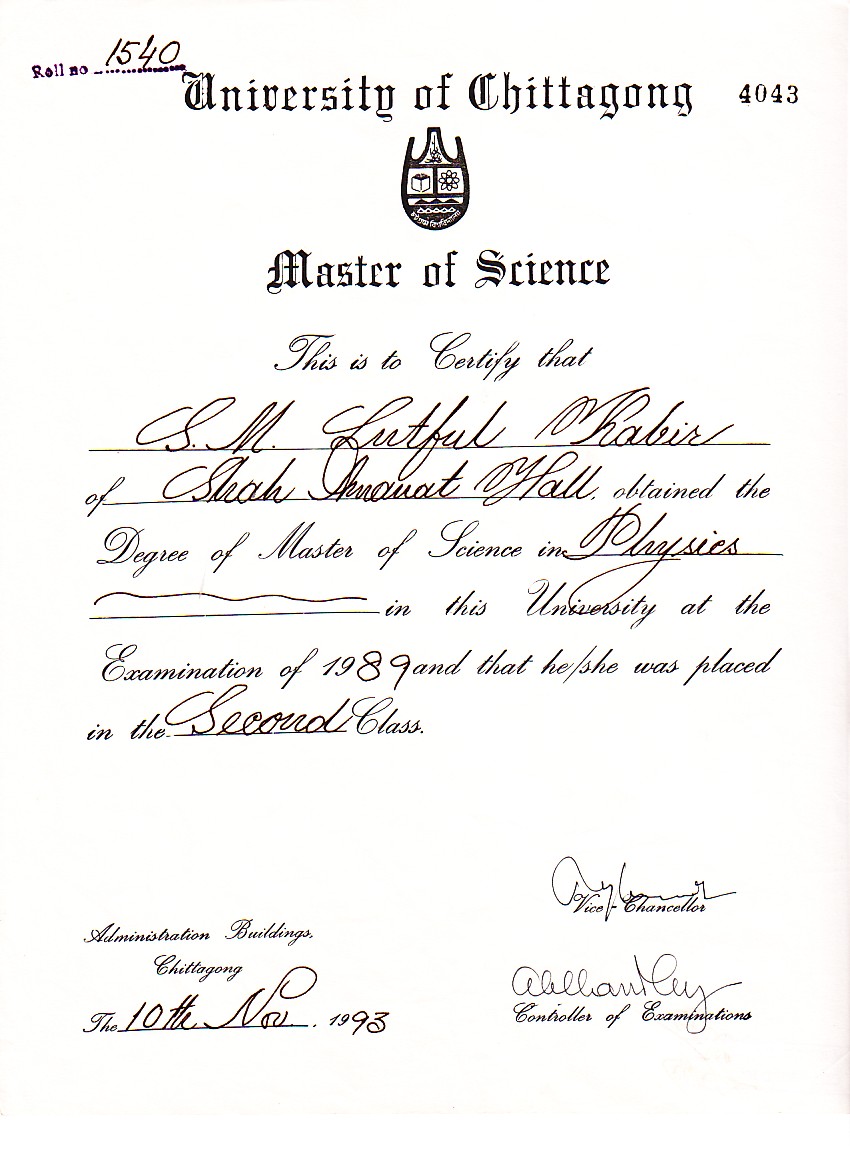 Roll no 1540
University of Chittagong 4043
চট্টগ্রাম বিশ্ববিদ্যালয়
Master of Science
This is to Certify that
S. M. Lutful Kabir
of Shah Amanat Hall, obtained the
Degree of Master of Science in Physics
in this University at the
Examination of 1989 and that he/she was placed
in the Second Class.
Vice-Chancellor
Administration Buildings,
Chittagong
The 10th Nov. 1993
Controller of Examinations